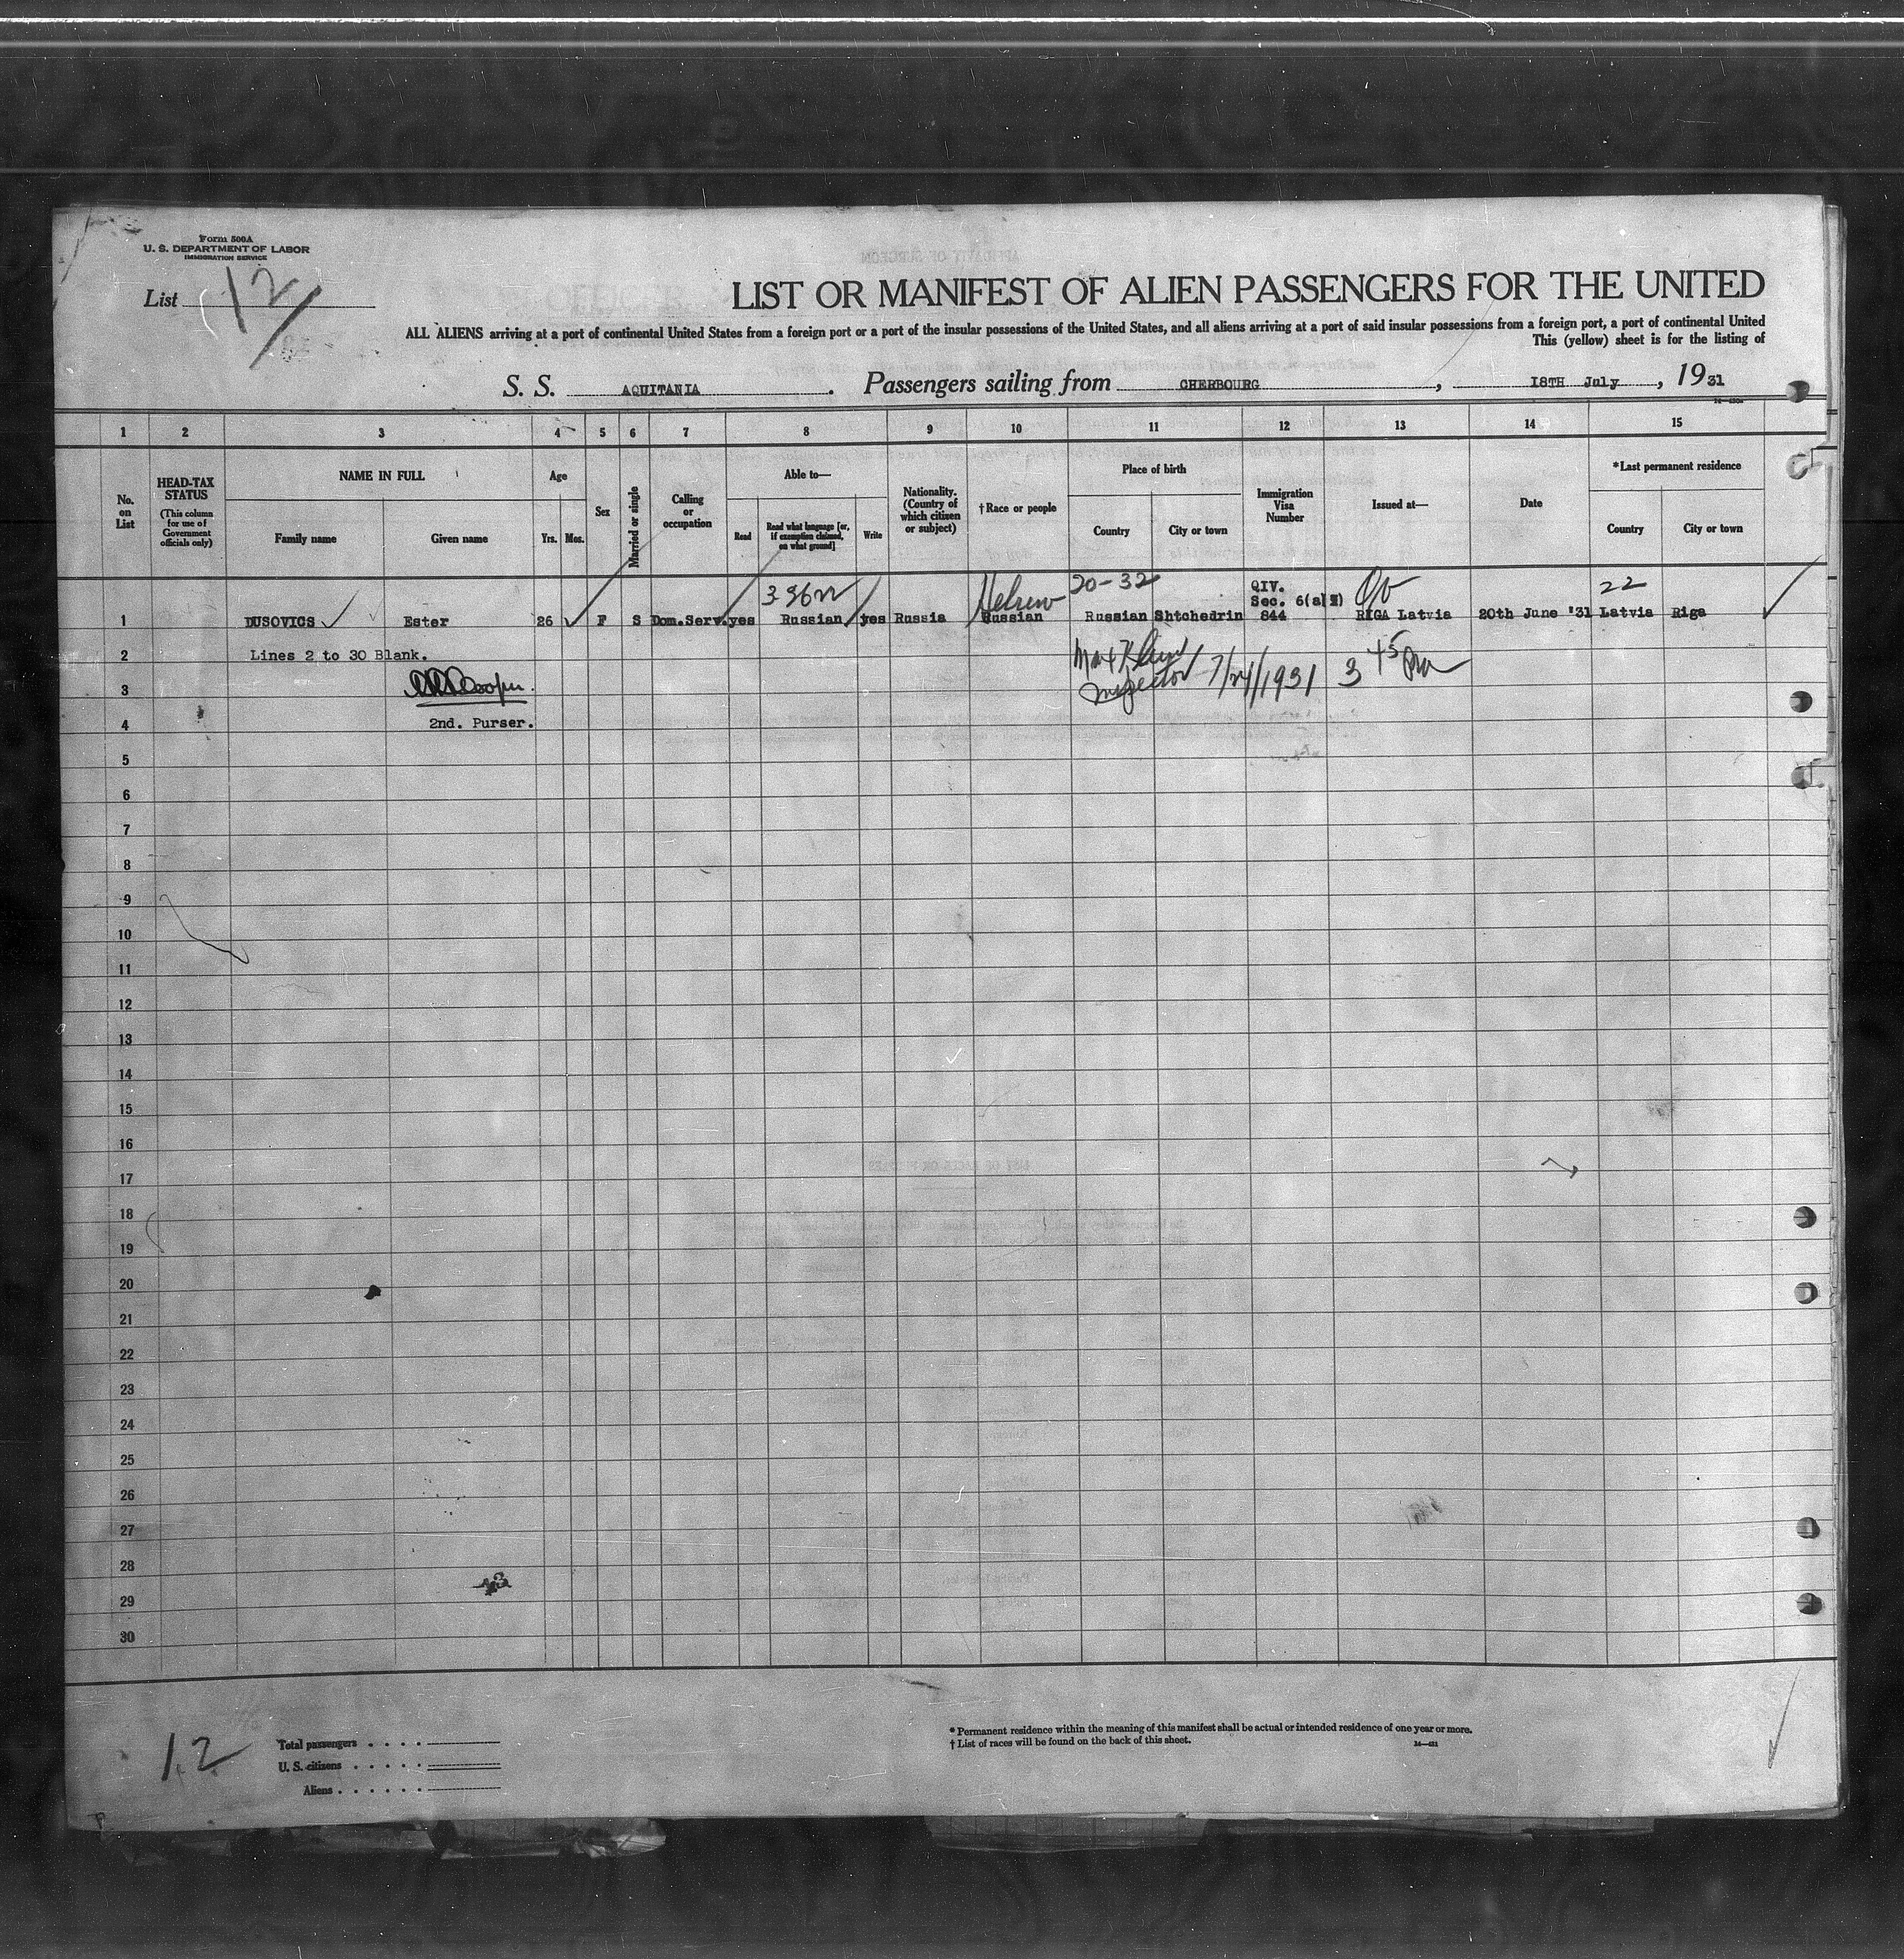 Form 500A
U. S. DEPARTMENT OF LABOR
IMMIGRATION SERVICE
List 12
LIST OR MANIFEST OF ALIEN PASSENGERS FOR THE UNITED
ALL ALIENS arriving at a port of continental United States from a foreign port or a port of the insular possessions of the United States, and all aliens arriving at a port of said insular possessions from a foreign port, a port of continental United
This (yellow) sheet is for the listing of
S. S. AQUITANIA. Passengers sailing from CHERBOURG, 18TH July, 1931
1 2 3 4 5 6 7 8 9 10 11 12 13 14 15
No. on List
HEAD-TAX STATUS
(This column for use of Government officials only)
NAME IN FULL
Family name
Given name
Age
Yrs.
Mos.
Sex
Married or single
Calling or occupation
Able to—
Read
Read what language [or, if exemption claimed, on what ground]
Write
Nationality. (Country of which citizen or subject)
†Race or people
Place of birth
Country
City or town
Immigration Visa Number
Issued at—
Date
*Last permanent residence
Country
City or town
Hebrew 20-32 QIV. 22
Sec. 6(a)
1 DUSOVICS Ester 26 F S Dom.Serv. yes Russian yes Russia Russian Russian Shtchedrin 844 RIGA Latvia 20th June '31 Latvia Riga
2 Lines 2 to 30 Blank.
3 Inspector 7/24/1931 3 45 pm
4 2nd. Purser.
5
6
7
8
9
10
11
12
13
14
15
16
17
18
19
20
21
22
23
24
25
26
27
28
29
30
12
Total passengers . . . .
U. S. citizens . . . . .
Aliens . . . . . .
* Permanent residence within the meaning of this manifest shall be actual or intended residence of one year or more.
† List of races will be found on the back of this sheet.